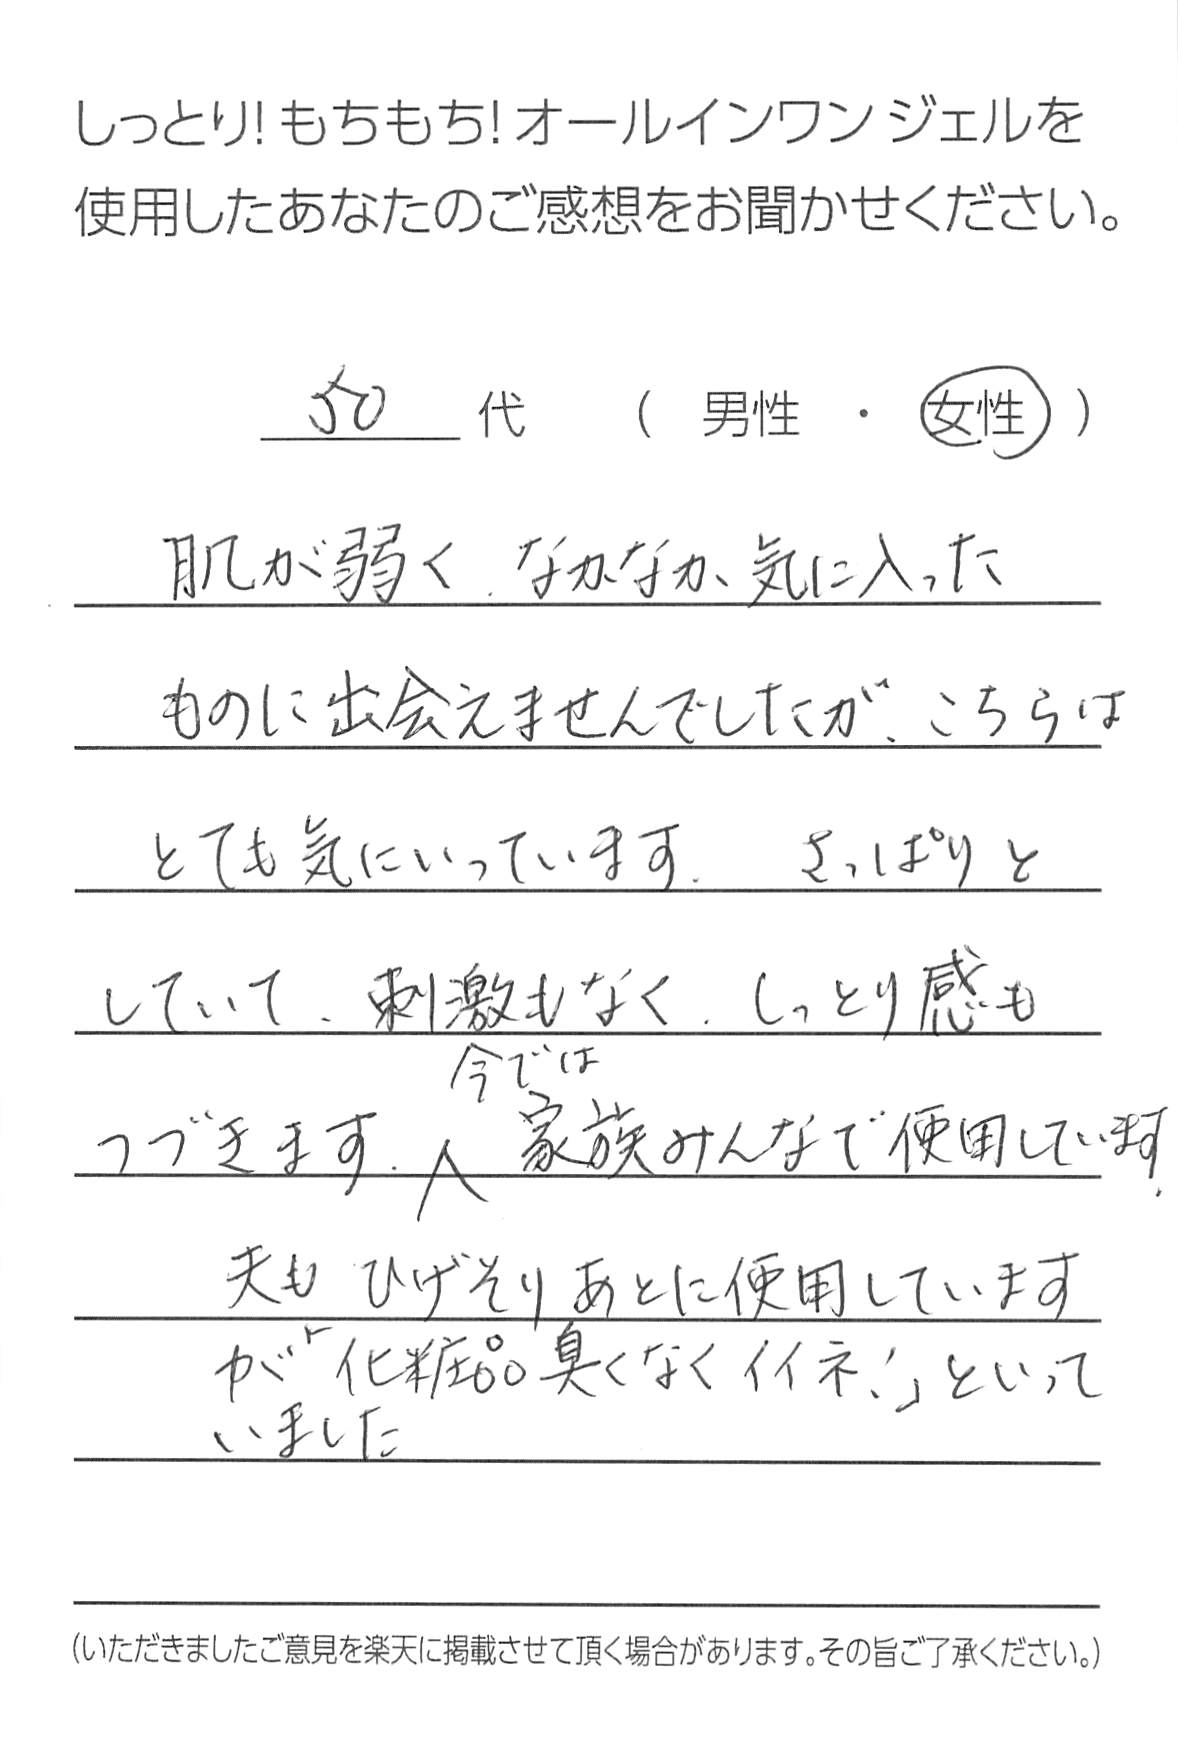 しっとり!もちもち!オールインワン ジェルを
使用したあなたのご感想をお聞かせください。
50 代 ( 男性 ・ 女性 )
肌が弱く、なかなか、気に入った
ものに出会えませんでしたが、こちらは
とても気にいっています。 さっぱりと
していて、刺激もなく、しっとり感も
今では
つづきます。家族みんなで使用しています。
夫も ひげそりあとに使用しています
が「化粧品臭くなくイイネ!」といって
いました
(いただきましたご意見を楽天に掲載させて頂く場合があります。その旨ご了承ください。)